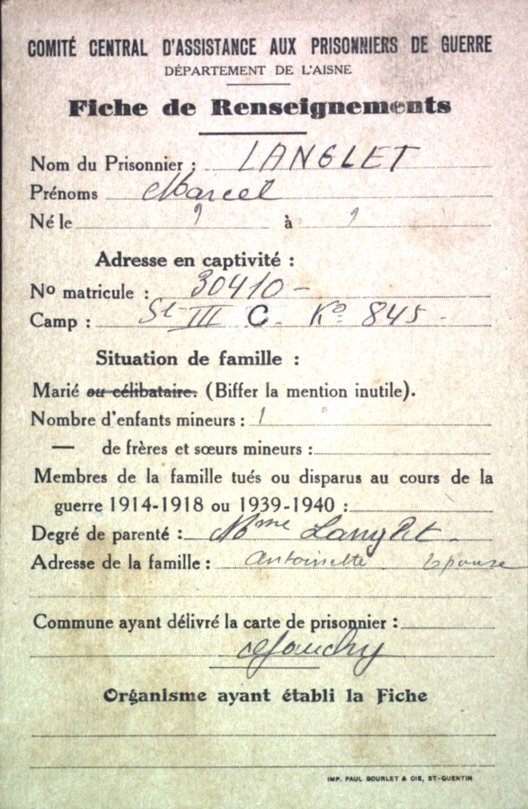 COMITÉ CENTRAL D'ASSISTANCE AUX PRISONNIERS DE GUERRE
DÉPARTEMENT DE L'AISNE
Fiche de Renseignements
Nom du Prisonnier : LANGLET
Prénoms Marcel
Né le ? à ?
Adresse en captivité :
No matricule : 30410 -
Camp : St III C. Ko 845 -
Situation de famille :
Marié ou célibataire. (Biffer la mention inutile).
Nombre d'enfants mineurs : 1
— de frères et sœurs mineurs :
Membres de la famille tués ou disparus au cours de la
guerre 1914-1918 ou 1939-1940 :
Degré de parenté : Mme Langlet -
Adresse de la famille : Antoinette Epouse
Commune ayant délivré la carte de prisonnier :
Organisme ayant établi la Fiche
IMP. PAUL BOURLET & CIE, ST-QUENTIN